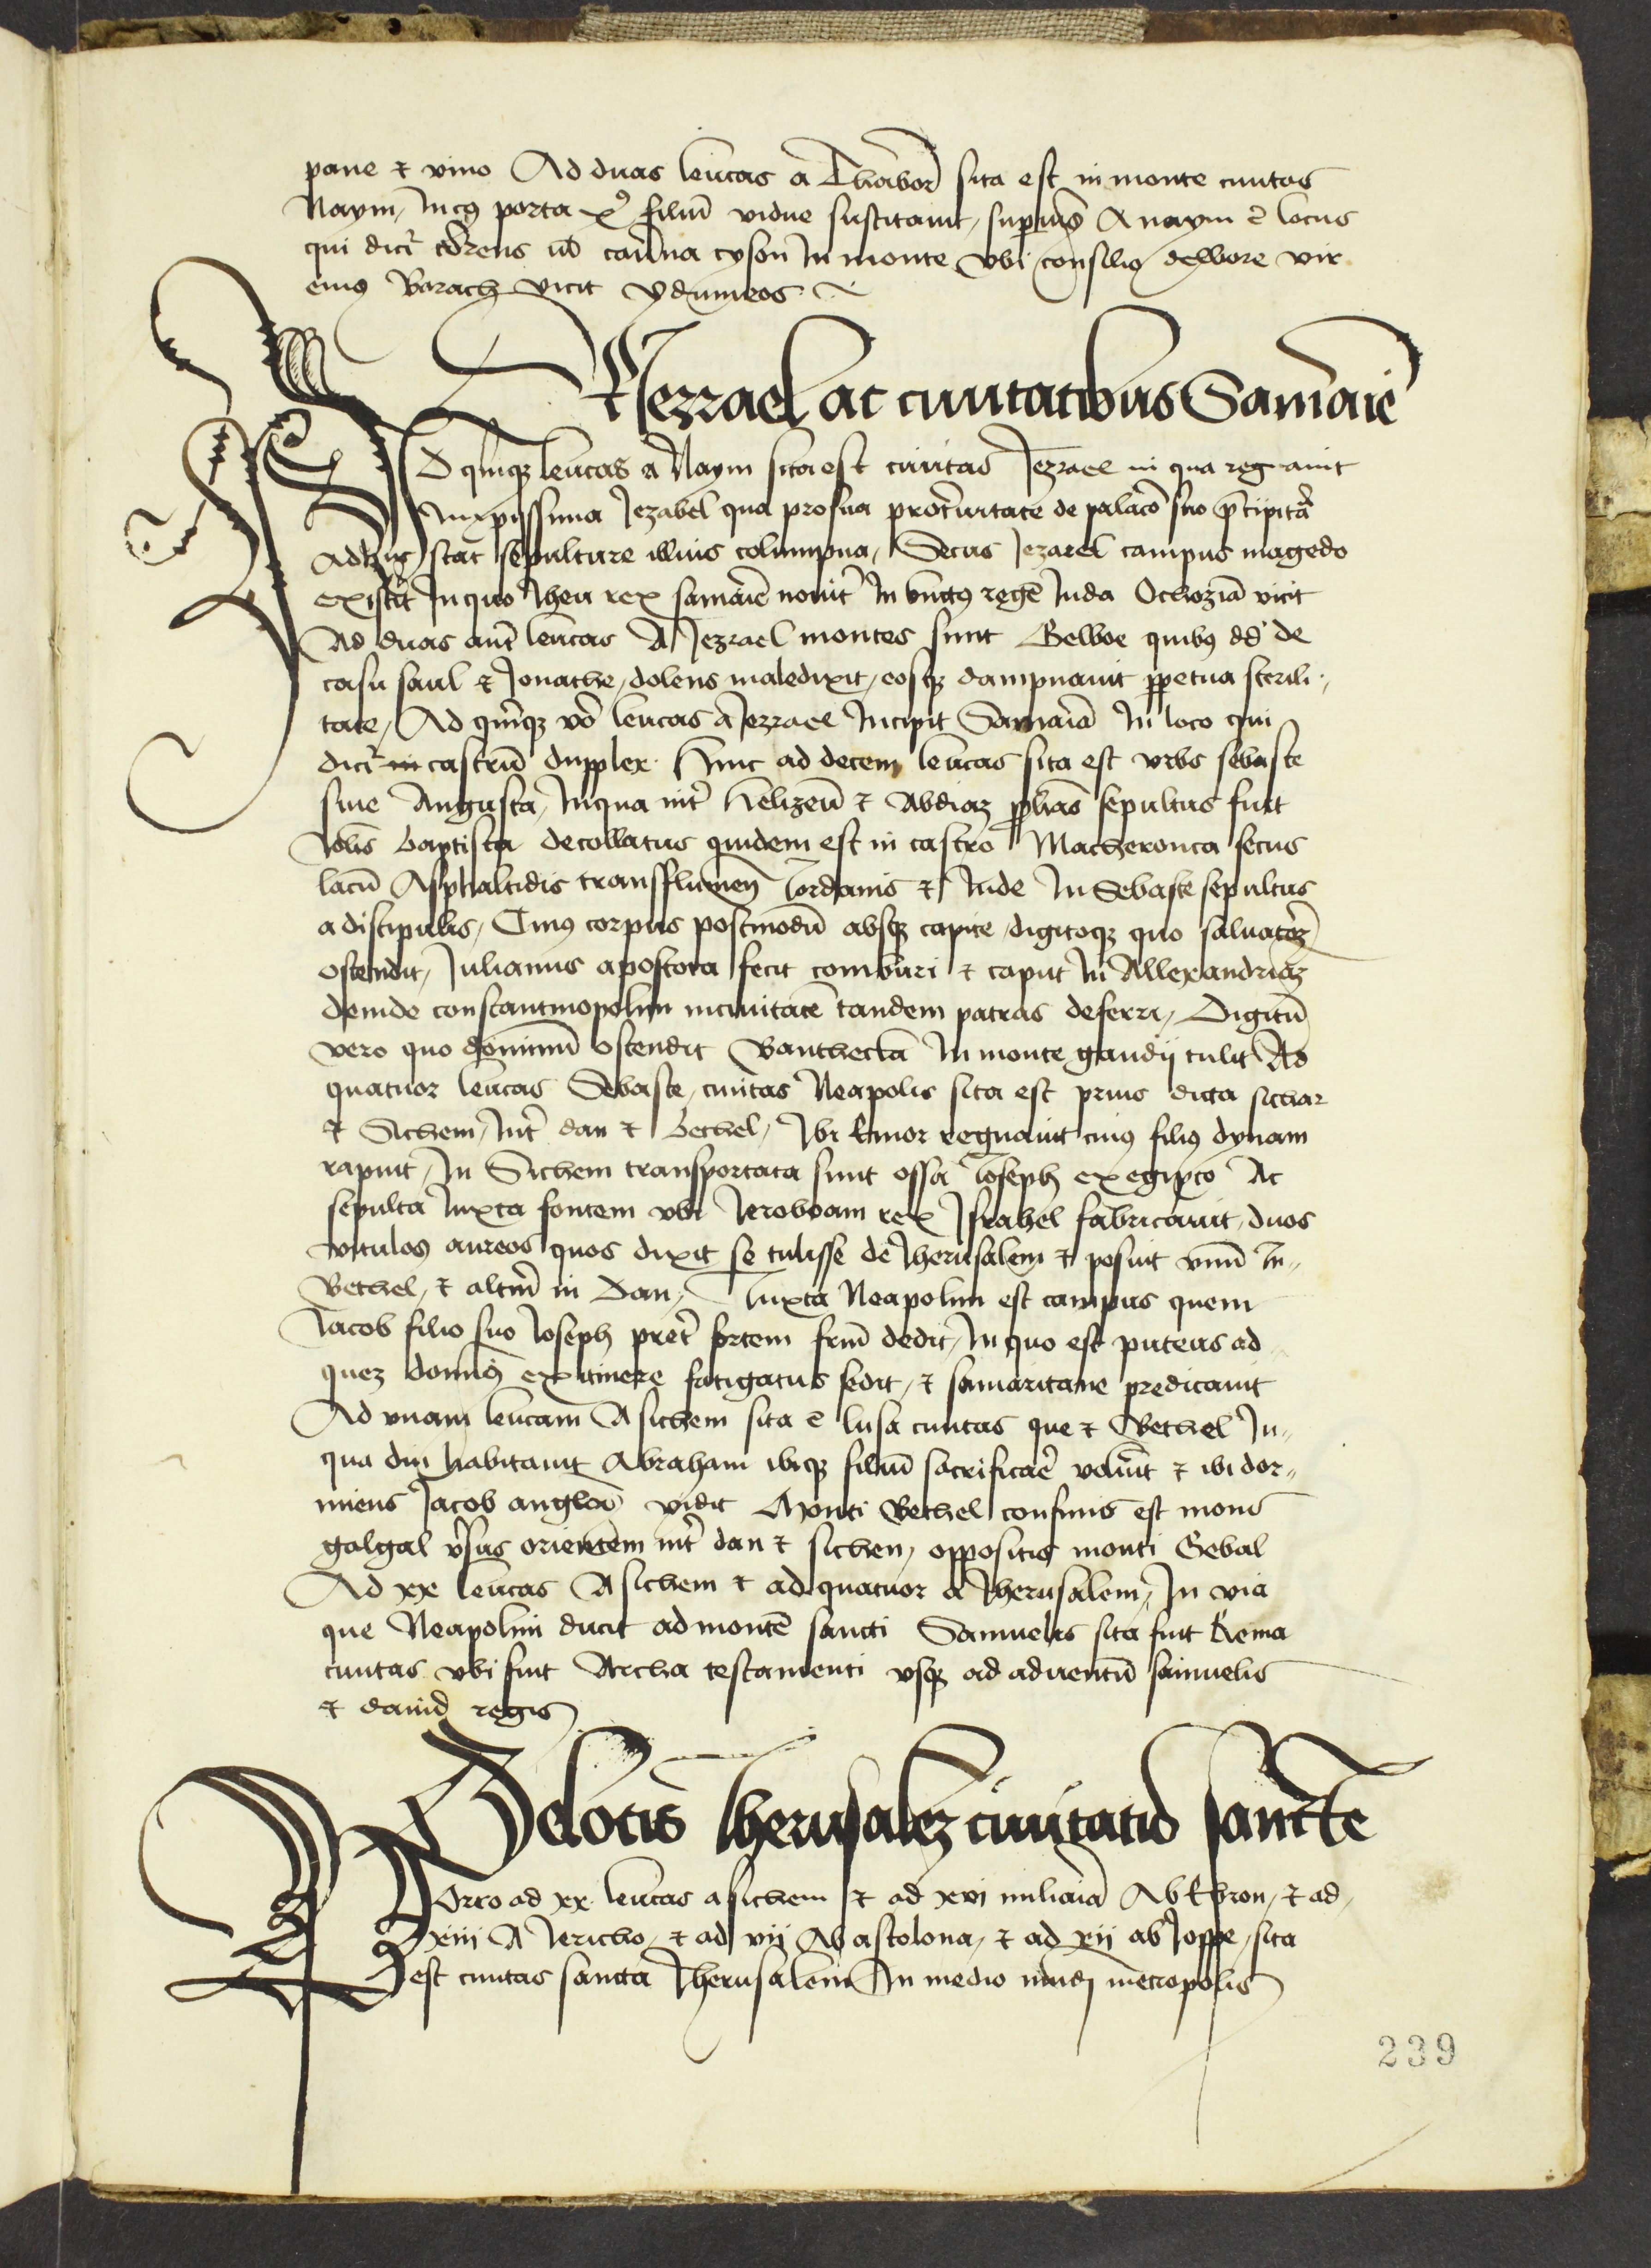 pane et vino Ad duas leucas a Thabor sita est in monte ciuitas
Naym, In cuius porta xpus filiu vidue suscitauit, superius A naym e locus
qui dicit torrens ul caruna cyson In monte vbi consilio delbore vir
eius Barach vicit ydumeos
Iezrael ac ciuitatibus Samarie
AD quinqz leucas a Naym sita est ciuitas Jezrael in qua regnauit
Impijssima Jezabel qua pro sua proteruitate de palacio suo precipitata
Adhuc stat sepulture illius columpna, Secus Jezarel campus magedo
existit In quo Iheu rex samarie nouit In vnctus rege Iuda Ochozia vicit
Ad duas aut leucas A Jezrael montes sunt Gelboe quibus dd de
casu saul et Jonathe, dolens maledixit, eosqz dampnauit ppetua sterili,
tate, Ad quinqz vo leucas a Jezrael Incipit Samaria In loco qui
dicit castru dupplex. Hinc ad decem leucas sita est vrbs sebaste
siue Augusta, In qua int Helizeu et Abdiaz pphas sepultus fuit
Johes baptista decollatus quidem est in castro Macheronta secus
lacu Asphaltidis transflumen Iordanis et Inde In Sebaste sepultus
a discipulis, Cuius corpus postmodu absqz capite, digitoqz quo saluatorez
ostendit, Julianus apostota fecit comburi et caput In Allexandriaz
deinde constantinopolim in ciuitate tandem patras deferri, Digitu
vero quo dominum ostendit Banthecta In monte gaudij tulit Ad
quatuor leucas Sebaste, ciuitas Neapolis sita est prius dicta sichar
et Sichem, Int dan et bethel, Ibi Emor regnauit cuius filius dynam
rapuit, In Sichem transportata sunt ossa Ioseph ex egipto Ac
sepulta Iuxta fontem vbi Ieroboam rex Israhel fabricauit, duos
vitulos aureos quos dixit se tulisse de Iherusalem et posuit vnu In,,
Bethel, et altru in Dan, Iuxta Neapolim est campus quem
Iacob filio suo Ioseph pret sortem frum dedit, In quo est puteus ad,,
quez domnus ex itinere fatigatus sedit, et samaritane predicauit
Ad vnam leucam A sichem sita e lusa ciuitas que et Bethel In,,
qua diu habitauit Abraham ibiqz filiu sacrificare voluit et ibi dor,,
miens Jacob angelos vidit Monti Bethel confinis est mons
galgal vsus orientem int dan et sichen, oppositus monti Gebal
Ad xx leucas A sichem et ad quatuor a Iherusalem, In via
que Neapolim ducit ad monte sancti Samuelis sita fuit Rema
ciuitas vbi fuit Archa testamenti vsqz ad aduentu samuelis
et dauid regis
De locis Iherusalez ciuitatis sancte
Porro ad xx leucas a sichem et ad xvi miliaria Ab Ebron, et ad,
xiii A Iericho, et ad vii Ab ascolona, et ad xii ab Joppe, sita
est ciuitas sancta Iherusalem In medio mudi metropolis
239